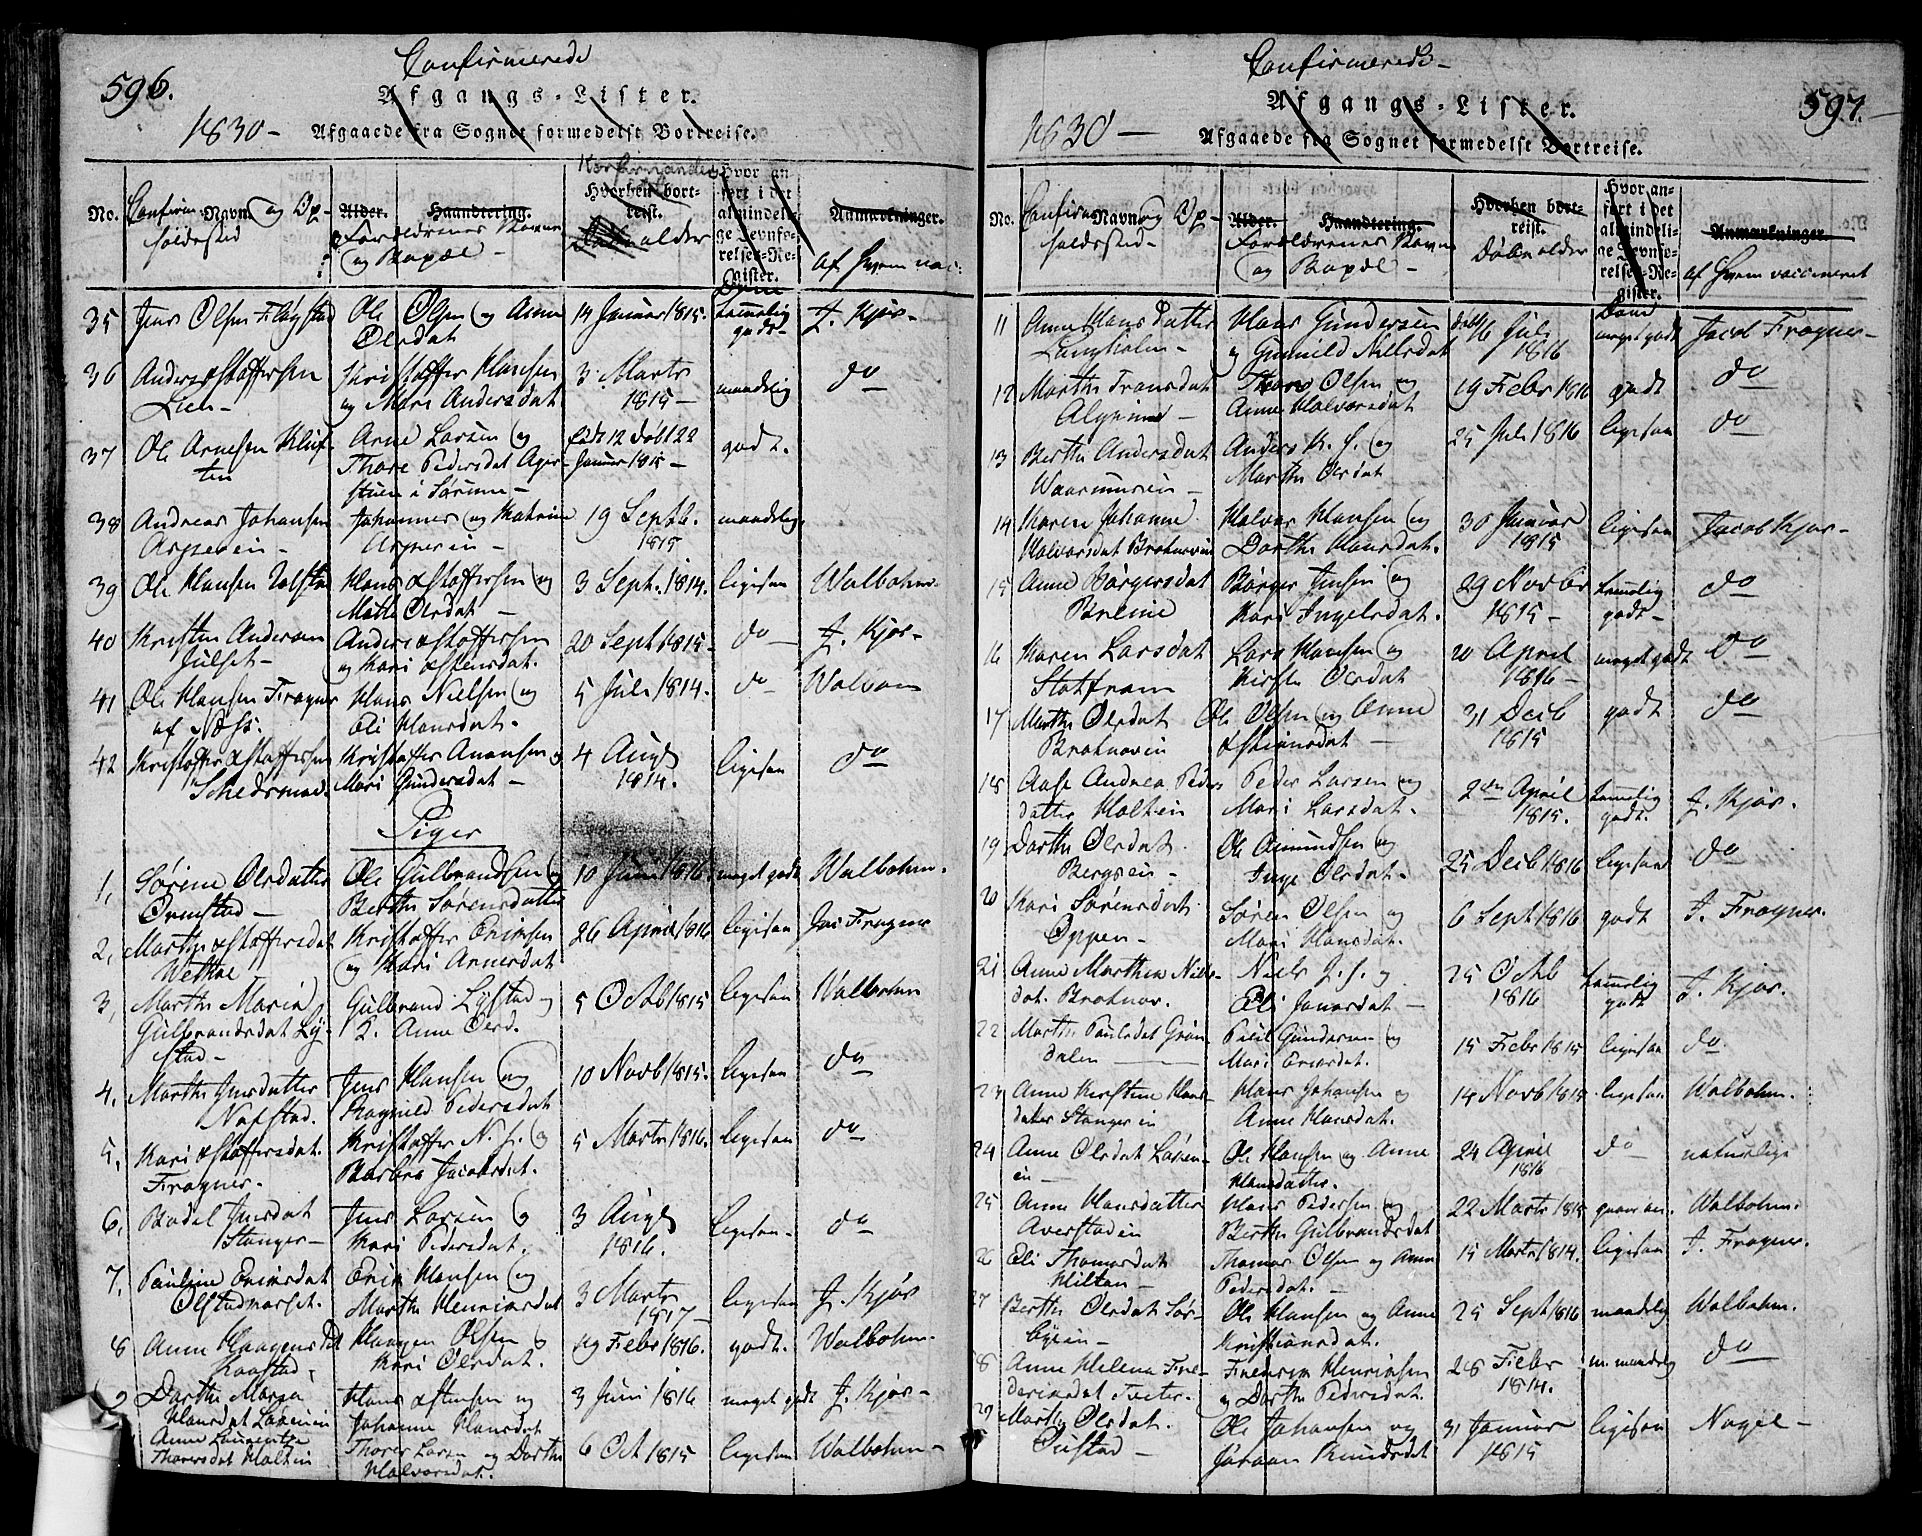 596.
Confirmerede
Afgangs-Lister.
1830 -
Afgaaede fra Sognet formedelst Bortreise.
No.
Confirm: Navn og Op-
foldested
Alder. Haandtering.
Forældrenes Navne
og Bopæl -
Hvorhen bort-
reist.
alder
Hvor an-
ført i det
almindeli-
ge Jevnfø-
relses-Re-
gister.
Anmærkninger.
af Hvem vac:
35 Jens Olsen Fløgstad
Ole Olsen og Anne
Olsdat
14 Januar 1815.
temmelig
godt-
J. Kjos-
36 Anders Stoffersen
Lien-
Kristoffer Hansen
og Mari Andersdat
3 Marts
1815-
maadelig
do
37 Ole Arnesen Kluf-
ten
Arne Larsen og
Thore Pedersdat Ager-
stuen i Sørum-
født 12 døbt 22
Januar 1815-
godt.
38 Andreas Johansen
Asperein-
Johannes og Katrine
Asperein-
19 Septb.
1815
maadelig
39 Ole Hansen
Hans Stoffersen og
Mathe Olsdat -
3 Sept. 1814.
ligesaa
Walbohm-
40 Kristen Andersen
Julset-
Anders Stoffersen
og Kari Ostensdat.
20 Sept 1815-
do
J. Kjos-
41 Ole Hansen Frogner
af Næss.
Hans Nielsen og
Eli Hansdat.
5 Juli 1814.
do
Walbom
42 Kristoffer Stoffersen
Schedsmoe.
Kristoffer Anansen og
Mari Gundersdat -
4 Augs
1814.
ligesaa
do
Piger
1, Sørine Olsdatter
Ormstad-
Ole Gulbrandsen og
Berthe Sørensdatter
10 Juni 1816.
meget godt
Walbohm.
2, Marthe Stoffersdat
Wethal
Kristoffer Ericksen
og Kari Arnesdat
26 April 1816
ligesaa
Jac Frogner
3, Marthe Maria
Gulbrandsdat Ly-
stad-
Gulbrand Lystad og
K. Anne Olsd.
5 Octb 1815
ligesaa
Walbohm
4, Marthe Jensdatter
Nafstad.
Jens Hansen og
Ragnild Pedersdat
10 Novb 1815.
ligesaa
do
5, Kari Stoffersdat.
Frogner.
Kristoffer N. S. og
Barbra Jacobsdat.
5 Marts 1816.
ligesaa
do
6, Bodel Jensdat
Stanger-
Jens Larsen og
Kari Pedersdat.
3 Augs
1816.
ligesaa-
do
7, Pauline Ericksdat
Olstadmarset.
Erick Hansen og
Marthe Henricksdat
3 Marts
1817-
ligesaa
J. Kjos
8 Anne Haagensdt
Kaastad,
Haagen Olsen og
Kari Olsdat.
19 Febr 1816.
godt.
Walbohm-
9 Dorthe Maria
Hansdat Løkenein
Hans Ostensen og
Johanne Hansdat
3 Juni 1816
meget godt
J. Kjos-
Anne Laurentze
Thoresdat Holtein
Thorer Larsen og Dorthe
Halvorsdat.
6 Oct 1815
ligesaa
Walbohm-
597.
Confirmerede-
Afgangs-Lister.
1830 -
Afgaaede fra Sognet formedelst Bortreise.
No.
Confirm: Navn og Op-
foldested-
Alder. Haandtering.
Forældrenes Navne
og Bopæl -
Hvorhen bort-
reist.
Døbealder
Hvor an-
ført i det
almindeli-
ge Jevnfø-
relses-Re-
gister.
Anmærkninger.
af Hvem vaccineret
11 Anne Hansdatter
Langholm-
Hans Gundersen
og Gunild Nielsdat
døbt 16 Juli
1816
meget godt
Jacob Frogner-
12 Marthe Fransdat
Alguim -
Olsen og
Anne Halvorsdat
19 Febr 1816
godt
do
13 Berthe Andersdat
Waarmursein -
Anders K. S. og
Marthe Olsdat
25 Juli 1816
ligesaa
do
14 Karen Johanne
Halvorsdat Brotnovein
Halvor Hansen og
Dorthe Hansdat.
30 Januar
1815
ligesaa
Jacob Kjos-
15 Anne Børgersdat
Breine
Børger Jensen og
Kari Ingelsdat.
29 Novbr
1815-
temmelig
godt-
do
16 Karen Larsdat
Stotfram
Lars Hansen og
Kirsten Olsdat
20 April
1816-
meget godt
do
17 Marthe Olsdat
Brotnovin
Ole Olsen og Anne
Ostensdat -
31 Decb
1815
godt
do
18 Aase Andrea Peders
datter Holtein
Peder Larsen og
Mari Larsdat.
2den April
1815.
temmelig
godt.
J. Kjos.
19 Dorthe Olsdat.
Bergsein-
Ole Amundsen og
Inge Olsdat.
25 Decb 1816
ligesaa
do
20 Kari Sørensdat
Oppen-
Søren Olsen og
Mari Hansdat.
6 Sept 1816
godt
J. Frogner.
21 Anne Marthea Niels-
dat. Brotnov.
Niels J. S. og
Eli Jonasdat -
25 Octb
1816
temmelig
godt
J. Kjos.
22 Marthe Paulsdat Grøn-
dalen
Poul Gundersen og
Mari Ericksdat.
15 Febr 1815
ligesaa
do
23 Anne Kirstine Hans-
datter Stangerein
Hans Johansen og
Anne Hansdat.
14 Novb 1815
ligesaa
Walbohm.
24 Anne Olsdat Løken-
ein -
Ole Hansen og Anne
Hansdatter.
24 April
1816
do
naturlige
25 Anne Hansdatter
Averstadein
Hans Pedersen og
Berthe Gulbrandsdat
22 Marts 1815
Walbohm.
26 Eli Thomasdat
Hilton-
Thomas Olsen og Anne
Pedersdat.
15 Marts 1814.
ligesaa
J. Frogner.
27 Berthe Olsdat Sør-
byein-
Ole Hansen og Anne
Kristiansdat.
25 Sept 1816
maadelig
Walbohm.
28 Anne Helena Fre-
dericksdat Teeter.
Frederick Henricksen
og Dorthe Pedersdat.
28 Febr
1814.
m. maadelig
do
29 Marthe Olsdat.
Justad-
Ole Johansen og
Joraan Knudsdat
31 Januar
1815
ligesaa
Nagel-